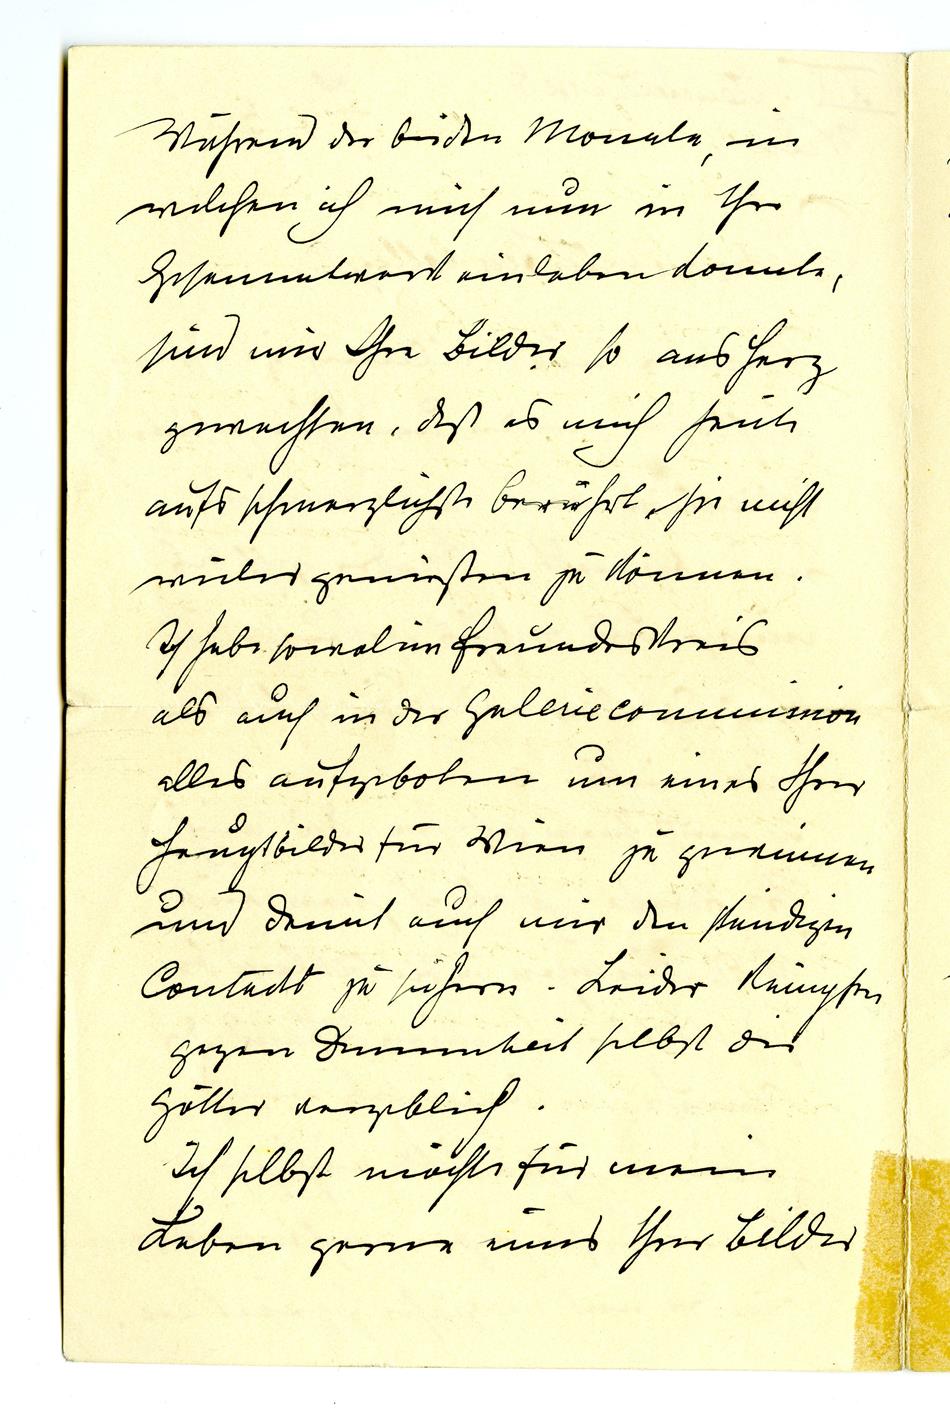 Während der beiden Monate, in
welchen ich mich nun in Ihr
Gesammtwerk einleben konnte,
sind mir Ihre Bilder so ans Herz
gewachsen, daß es mich heute
aufs schmerzlichste berührt, sie nicht
wieder genießen zu können.
Ich habe sowol im Freundeskreis
als auch in der Galeriecommission
alles aufgeboten um eines Ihrer
Hauptbilder für Wien zu gewinnen
und damit auch mir den ständigen
Contackt zu sichern. Leider kämpfen
gegen Dummheit selbst die
Götter vergeblich.
Ich selbst möchte für mein
Leben gerne eines Ihrer Bilder